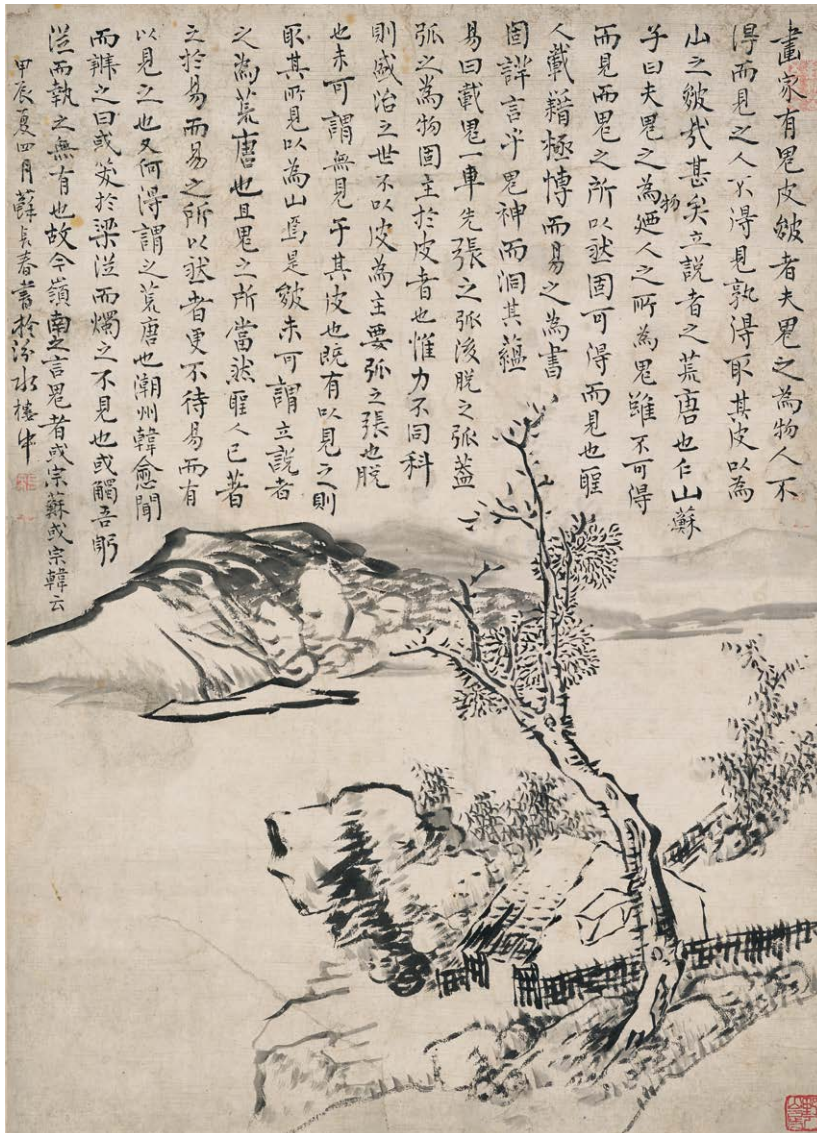 畫家有鬼皮皴者夫鬼之為物人不
得而見之人不得見孰得取其皮以為
山之皴哉甚矣立說者之荒唐也仁山蘇
子曰夫鬼之為物廼人之所為鬼雖不可得
而見而鬼之所以然固可得而見也聖
人載籍極博而易之為書
固詳言乎鬼神而洞其蘊
易曰載鬼一車先張之弧後脫之弧蓋
弧之為物固主於皮者也惟力不同科
則盛治之世不以皮為主要弧之張也脫
也未可謂無見于其皮也既有以見之則
取其所見以為山焉是皴未可謂立說者
之為荒唐也且鬼之所當然聖人已著
之於易而易之所以然者更不待易而有
以見之也又何得謂之荒唐也潮州韓愈聞
而辨之曰或笑於梁從而燭之不見也或觸吾躬
從而執之無有也故今嶺南之言鬼者或宗蘇或宗韓云
甲辰夏四月蘇長春書於汾水樓中